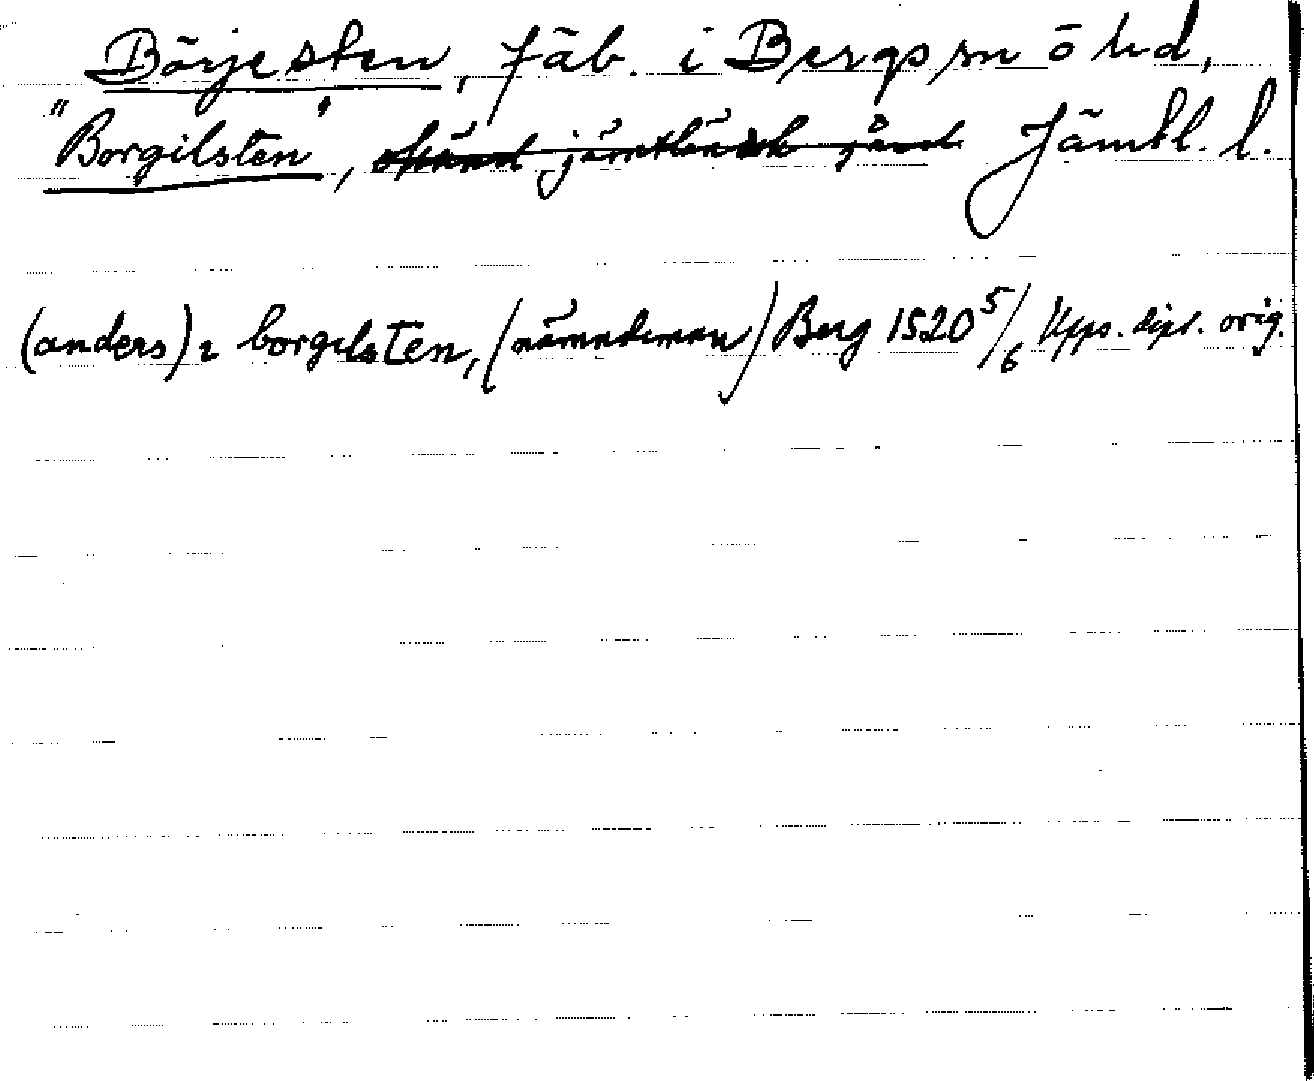 Börjesten, fäb. i Bergs sn ö hd,
"Borgilsten", okänd jämtländsk gård Jämtl. l.
(anders) i borgilsten, (nämndeman) Berg 1520 5/6 Upps. dipl. orig.